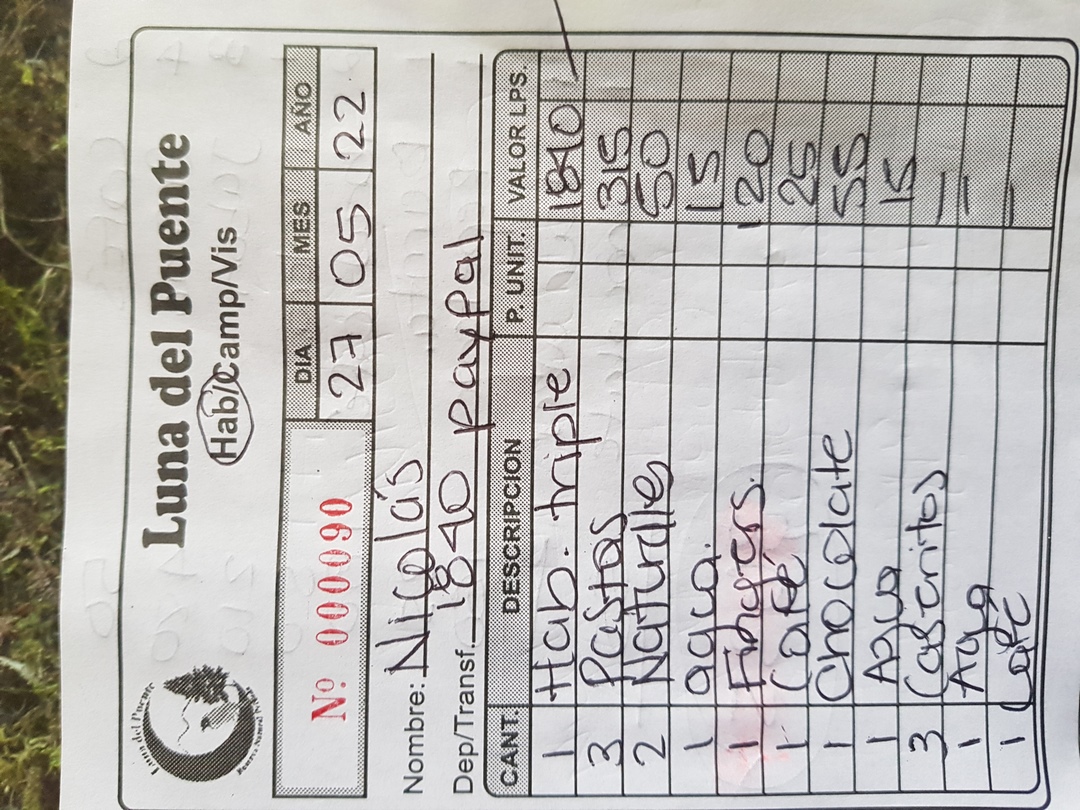 Luna del Puente
Hab/Camp/Vis
Luna del Puente
Nº 000090
DIA MES AÑO
27 05 22
Nombre: Nicolás
Dep/Transf. 1840 paypal
CANT. DESCRIPCION P. UNIT. VALOR LPS.
1 Hab. triple 1840
3 Pastas 315
2 Naturilles 50
1 agua. 15
1 Fingers. 120
1 Cafe 25
1 Chocolate 55
1 Agua 15
3 Caseritos —
1 Agua —
1 Cafe —